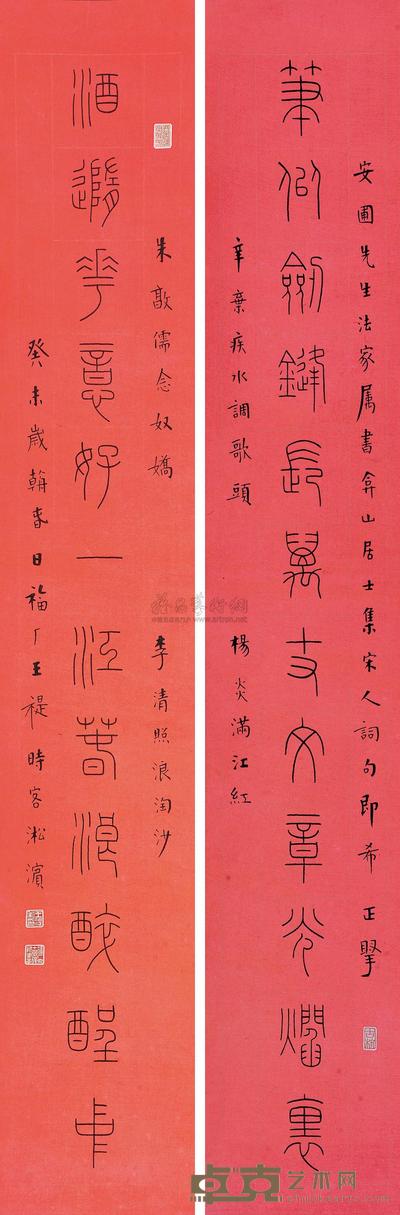 安圃先生法家属書弇山居士集宋人詞句即希正擘
筆似劍鋒長萬丈文章光爓裏
辛棄疾水調歌頭
楊炎滿江紅
朱敦儒念奴嬌
李清照浪淘沙
酒邊花意好一江春浪醉醒中
癸未歲朝春日福厂王禔時客淞濱
卓克艺术网